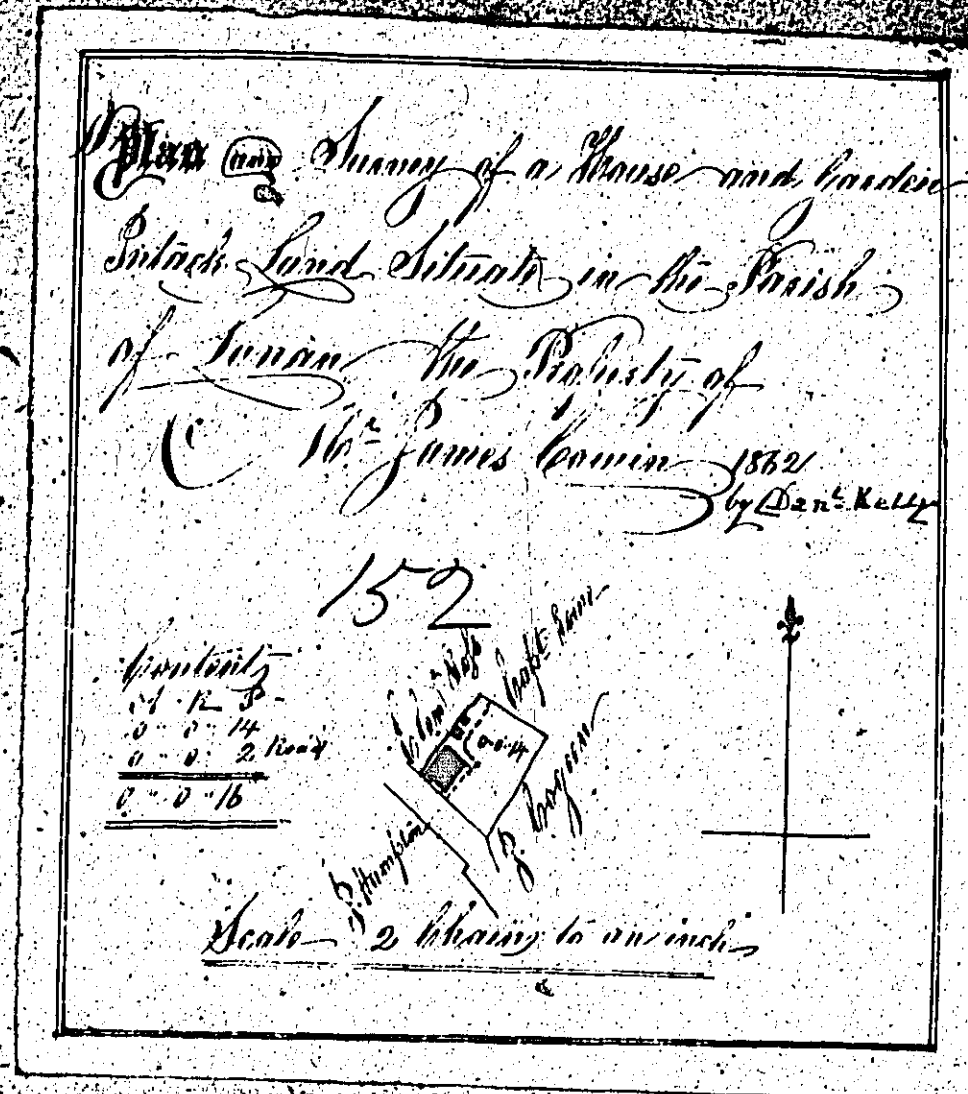 Plan and Survey of a House and Garden
Intack Land Situate in the Parish
of Lonan the Property of
Mr James Cowin 1862
by Danl Kelly
152
Contents
A R P
0 " 0 " 14
0 " 0 " 2 Road
0 " 0 " 16
0-0-14
Scale 2 Chains to an inch